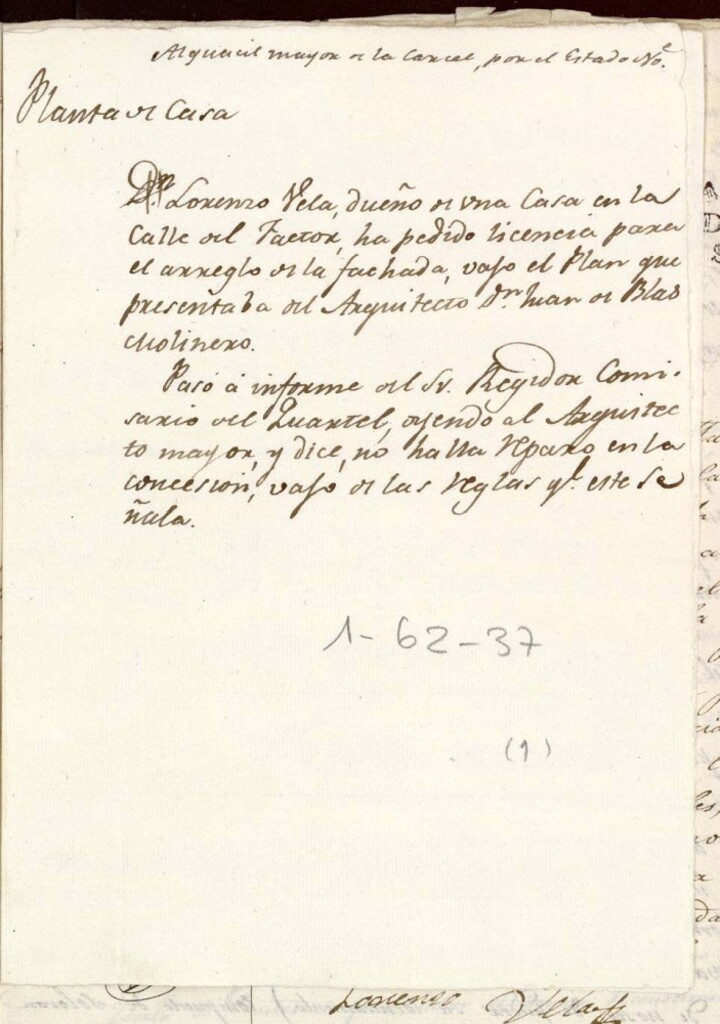 Alguacil mayor de la Carcel, por el Estado No.e
Planta de Casa
Dn. Lorenzo Vela, dueño de una Casa en la
Calle del Factor, ha pedido licencia para
el arreglo de la fachada, vajo el Plan que
presentaba del Arquitecto Dn. Juan de Blas
Molinero.
Pasó á informe del Sr. Regidor Comi-
sario del Quartel, oyendo al Arquitec
to mayor, y dice, no halla reparo en la
concesion, vajo de las reglas qe. este Se
ñala.
1-62-37
(1)
Lorenzo Vela